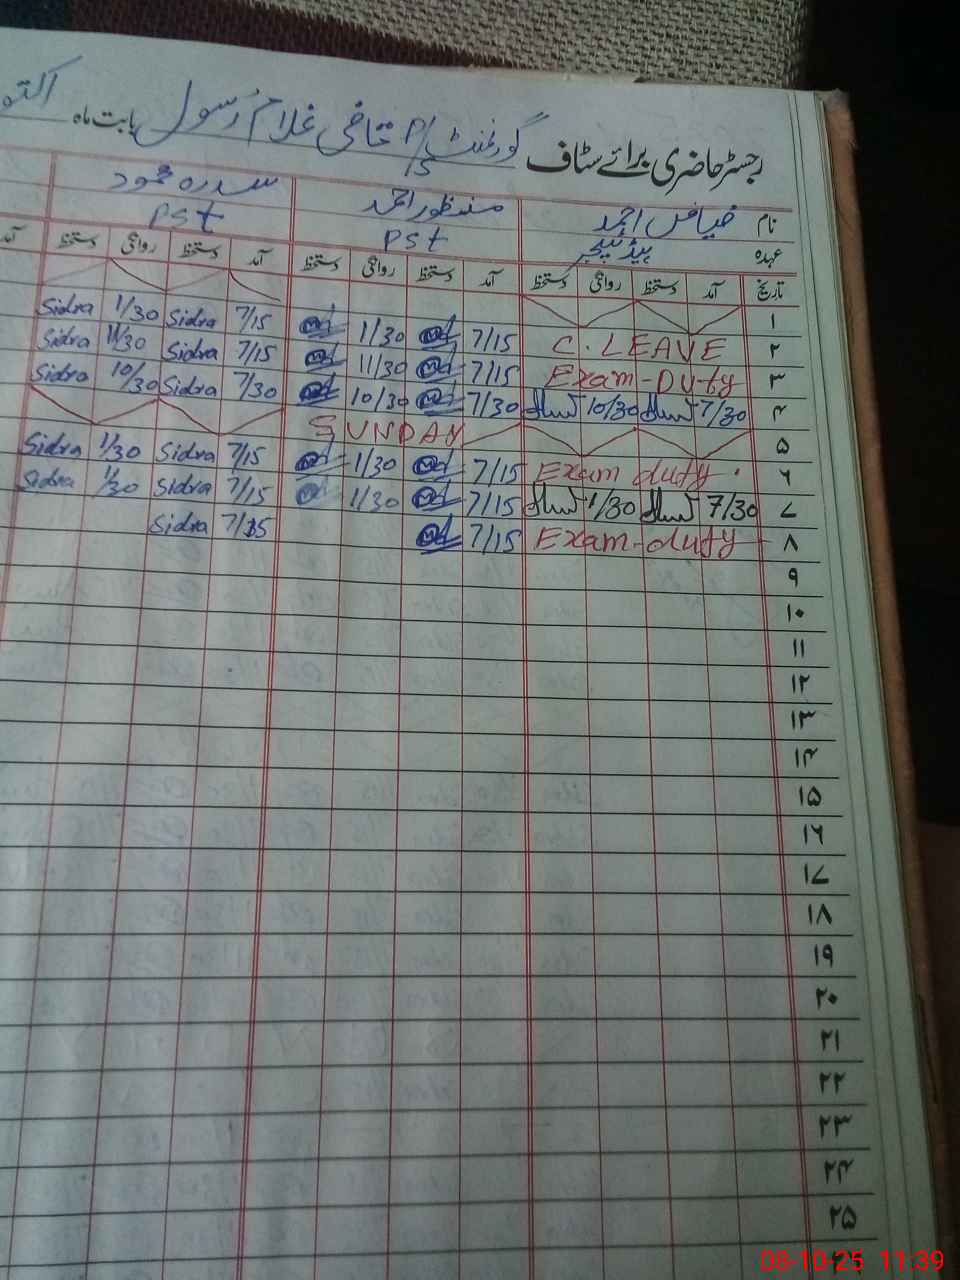 رجسٹر حاضری برائے سٹاف گورنمنٹ P/S قاضی غلام رسول بابت ماہ اکتو
نام فیاض احمد منظور احمد سدرہ محمود
عہدہ ہیڈ ٹیچر PSt PSt
تاریخ آمد دستخط روانگی دستخط آمد دستخط روانگی دستخط آمد دستخط روانگی دستخط آمد
۱
۲ C. LEAVE 7/15 1/30 7/15 Sidra 1/30 Sidra
۳ Exam-Duty 7/15 11/30 7/15 Sidra 11/30 Sidra
۴ 7/30 10/30 7/30 10/30 7/30 Sidra 10/30 Sidra
۵ SUNDAY
۶ Exam duty. 7/15 1/30 7/15 Sidra 1/30 Sidra
۷ 7/30 1/30 7/15 1/30 7/15 Sidra 1/30 Sidra
۸ Exam-duty 7/15 7/15 Sidra
۹
۱۰
۱۱
۱۲
۱۳
۱۴
۱۵
۱۶
۱۷
۱۸
۱۹
۲۰
۲۱
۲۲
۲۳
۲۴
۲۵
08-10-25 11:39